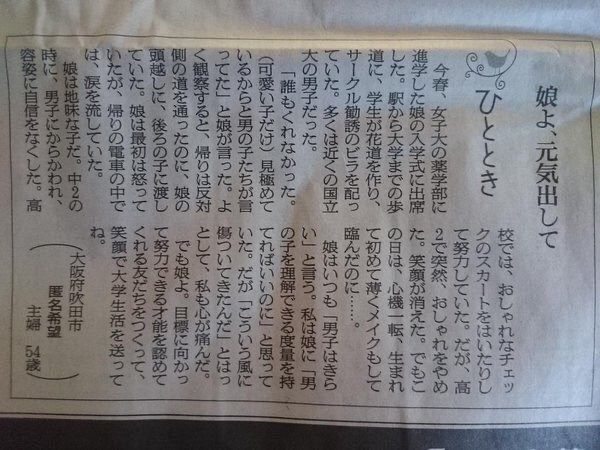 娘よ、元気出して
ひととき
今春、女子大の薬学部に
進学した娘の入学式に出席
した。駅から大学までの歩
道に、学生が花道を作り、
サークル勧誘のビラを配っ
ていた。多くは近くの国立
大の男子だった。
「誰もくれなかった。
（可愛い子だけ）見極めて
いるからと男の子たちが言
ってた」と娘が言った。よ
く観察すると、帰りは反対
側の道を通ったのに、娘の
頭越しに、後ろの子に渡し
ていた。娘は最初は怒って
いたが、帰りの電車の中で
は、涙を流していた。
娘は地味な子だ。中2の
時に、男子にからかわれ、
容姿に自信をなくした。高
校では、おしゃれなチェッ
クのスカートをはいたりし
て努力していた。だが、高
2で突然、おしゃれをやめ
た。笑顔が消えた。でもこ
の日は、心機一転、生まれ
て初めて薄くメイクもして
臨んだのに……。
娘はいつも「男子はきら
い」と言う。私は娘に「男
の子を理解できる度量を持
てればいいのに」と思って
いた。だが「こういう風に
傷ついてきたんだ」とはっ
として、私も心が痛んだ。
でも娘よ。目標に向かっ
て努力できる才能を認めて
くれる友だちをつくって、
笑顔で大学生活を送って
ね。
（大阪府吹田市
匿名希望
主婦 54歳）